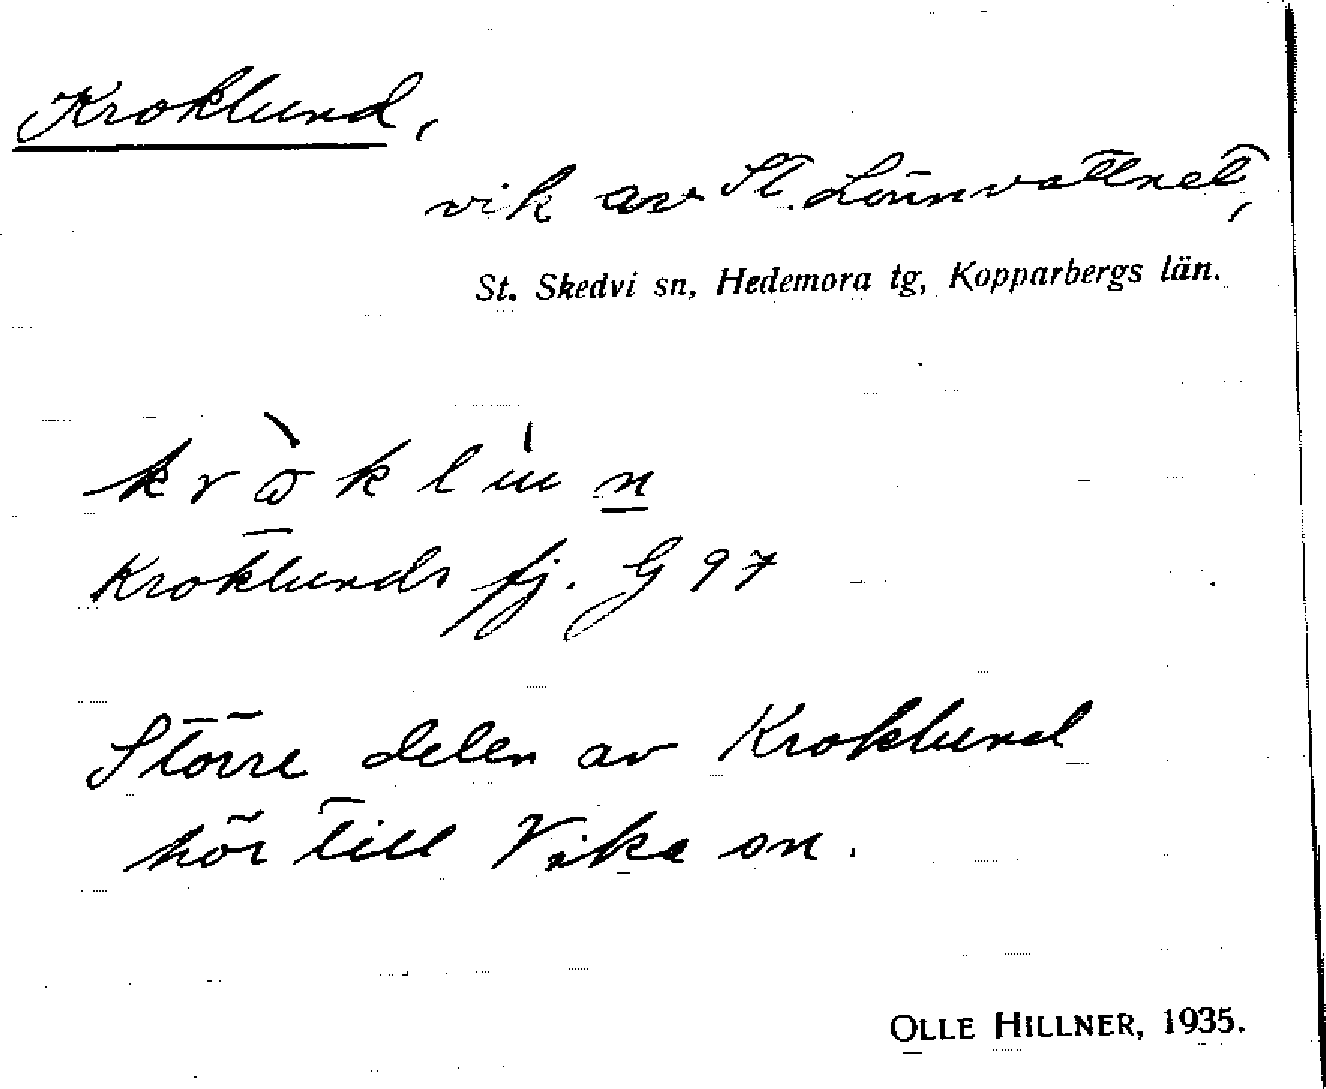 Kroklund,
vik av St. Lönnvattnet,
St. Skedvi sn, Hedemora tg, Kopparbergs län.
Kroklunds fj. G 97
Större delen av Kroklund
hör till Vika sn.
OLLE HILLNER, 1935.